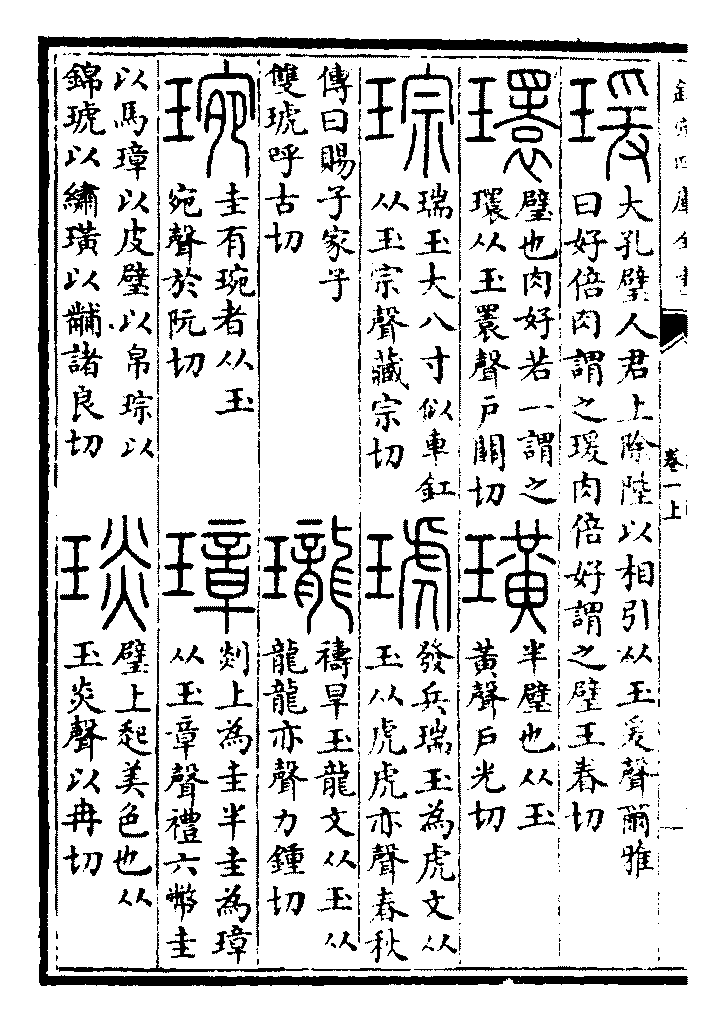 欽定四庫全書
卷一上
瑗
大孔璧人君上除陛以相引从玉爰聲爾雅
曰好倍肉謂之瑗肉倍好謂之璧王眷切
環
璧也肉好若一謂之
環从玉睘聲戶關切
璜
半璧也从玉
黃聲戶光切
琮
瑞玉大八寸似車釭
从玉宗聲藏宗切
琥
發兵瑞玉為虎文从
玉从虎虎亦聲春秋
傳曰賜子家子
雙琥呼古切
瓏
禱旱玉龍文从玉从
龍龍亦聲力鍾切
琬
圭有琬者从玉
宛聲於阮切
璋
剡上為圭半圭為璋
从玉章聲禮六幣圭
以馬璋以皮璧以帛琮以
錦琥以繡璜以黼諸良切
琰
璧上起美色也从
玉炎聲以冉切